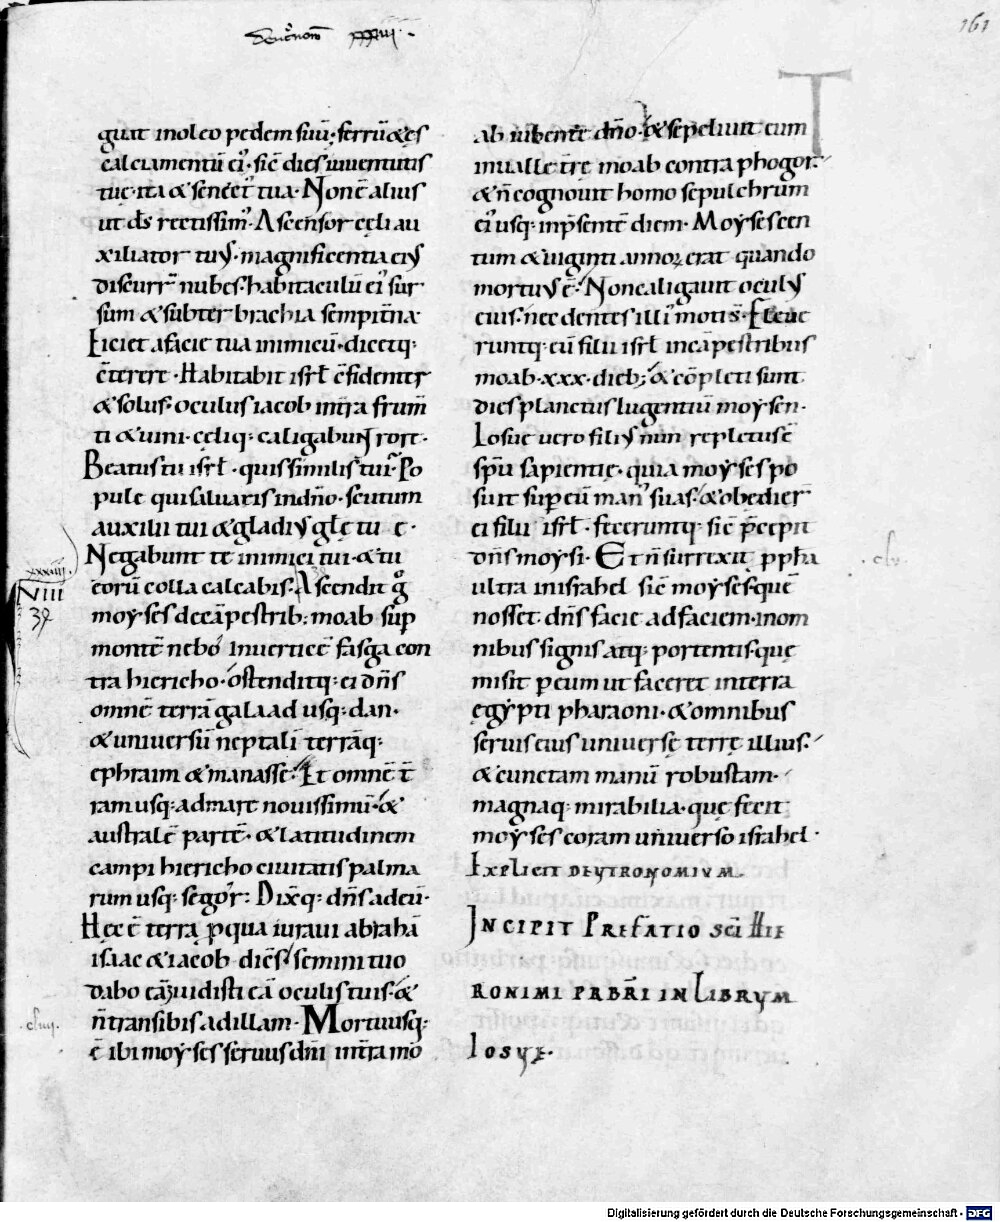 Deut'nom xxxiii.
161
guit in oleo pedem suū; ferrū & ęs
calciamentū ei'. sic̄ dies iuuentutis
tuę. ita & senect' tua. Non ē alius
ut ds̄ rectissim'. Ascensor cęli au
xiliator tuus. magnificentia eius
discurr̄ nubes. habitaculū ei' sur
sum & subter brachia sempit̄na
Eiciet a facie tua inimicū. dicetq:
c̄terere. Habitabit isrł c̄fidenter
& solus. oculus iacob in t̄ra frum̄
ti & uini. cęliq: caligabunt rore.
Beatus tu isrł. quis similis tui? Po
pule qui saluaris in dn̄o. scutum
auxilii tui & gladius glę tu ę.
Negabunt te inimici tui. & tu
eorū colla calcabis. Ascendit g°
moyses de cāpestrib: moab sup
montē nebo in uerticē fasga con
tra hiericho. ostenditq: ei dn̄s
omnē terrā galaad usq: dan.
& uniuersū neptalī terrāq:
ephraim & manasse. Et omnē t̄
ram usq: ad mare nouissimū. &
australē partē. & latitudinem
campi hiericho ciuitatis palma
rum usq: segor. Dixq: dn̄s ad eū.
Hęc ē terra, p qua iuraui abrahā
isaac & iacob dic̄s. semini tuo
dabo eā; uidisti eā oculis tuis. &
n̄ transibis ad illam. Mortuusq:
ē ibi moyses seruus dn̄i in t̄ra mo
xxxiiii
NIII
34
cliiii.
T
ab iubente dn̄o. & sepeliuit eum
in ualle t̄rę moab contra phogor.
& n̄ cognouit homo sepulchrum
ei' usq: in p̄sentē diem. Moyses cen
tum & uiginti annoꝝ erat quando
mortuus ē. Non caligauit oculus
eius. nec dentes illi' moti s̄. Fleue
runtq: eū filii isrł in cāpestribus
moab. xxx. dieb; & cōpleti sunt
dies planctus lugentiū moysen.
Iosue uero filius nun repletus ē
sp̄u sapientię. quia moyses po
suit sup eū man' suas. & obedier̄
ei filii isrł. feceruntq: sic̄ p̄cepit
dn̄s moysi. Et n̄ surrexit ppha
ultra in israhel sic̄ moyses. quē
nosset dn̄s facie ad faciem. in om
nibus signis atq: portentis. quę
misit p eum ut faceret in terra
ęgypti pharaoni. & omnibus
seruis eius uniuersę terrę illius.
& cunctam manū robustam.
magnaq: mirabilia. quę fecit
moyses coram uniuerso israhel.
clv.
EXPLICIT DEUTRONOMIUM.
INCIPIT PREFATIO SCI HIE
RONIMI PRBRI IN LIBRUM
IOSUE.
Digitalisierung gefördert durch die Deutsche Forschungsgemeinschaft - DFG